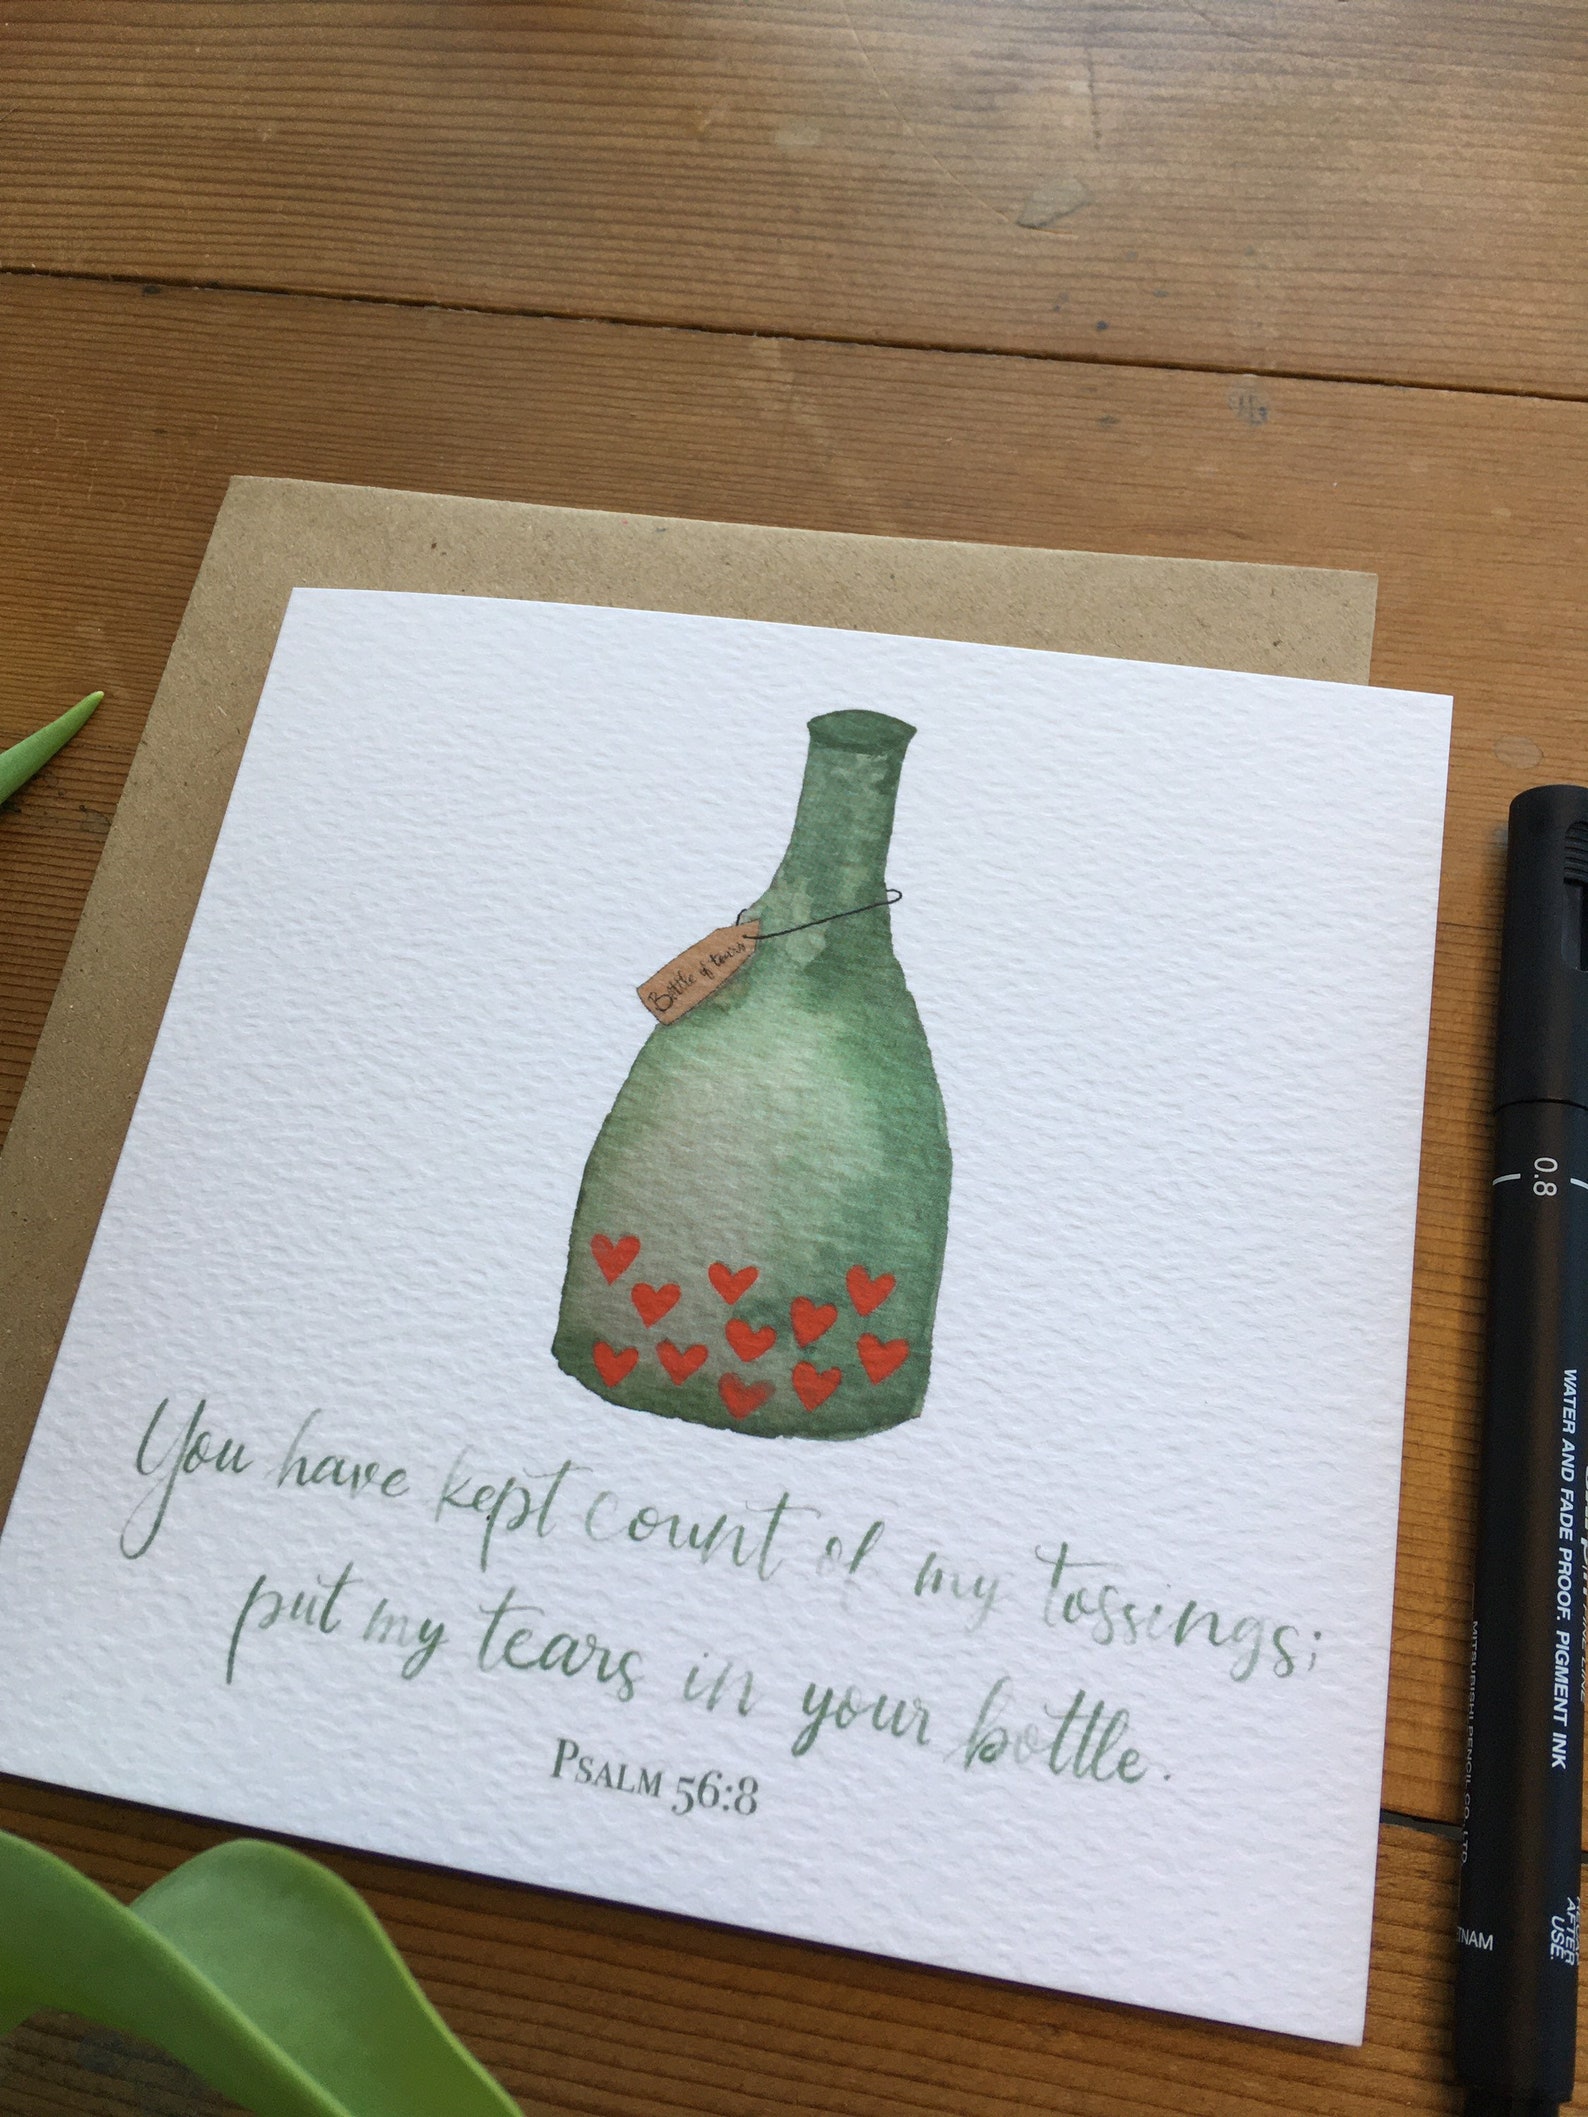 Bottle of tears
You have kept count of my tossings;
put my tears in your bottle.
Psalm 56:8
0.8
WATER AND FADE PROOF. PIGMENT INK
MITSUBISHI PENCIL CO., LTD.
AFTER USE.